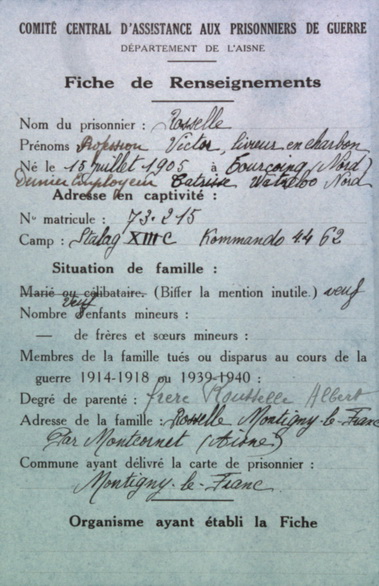 COMITÉ CENTRAL D'ASSISTANCE AUX PRISONNIERS DE GUERRE
DÉPARTEMENT DE L'AISNE
Fiche de Renseignements
Nom du prisonnier : Rosselle
Prénoms Profession Victor, livreur en charbon
Né le 15 juillet 1905 à Tourcoing (Nord)
Dernier employeur Watreloo Nord
Adresse en captivité :
No matricule : 73.215
Camp : Stalag XIII C Kommando 44 62
Situation de famille :
Marié ou célibataire. (Biffer la mention inutile.) veuf
veuf
Nombre d'enfants mineurs :
— de frères et sœurs mineurs :
Membres de la famille tués ou disparus au cours de la
guerre 1914-1918 ou 1939-1940 :
Degré de parenté : frere Rousselle Albert
Adresse de la famille : Rosselle Montigny-le-Franc
Par Montcornet (Aisne)
Commune ayant délivré la carte de prisonnier :
Montigny-le-Franc
Organisme ayant établi la Fiche